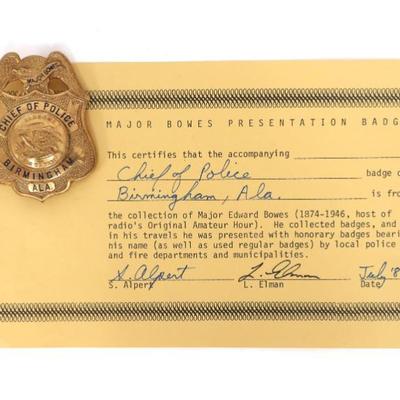 MAJOR BOWES
CHIEF OF POLICE
BIRMINGHAM
ALA
MAJOR BOWES PRESENTATION BADG
This certifies that the accompanying
Chief of Police badge o
Birmingham, Ala. is fro
the collection of Major Edward Bowes (1874-1946, host of
radio's Original Amateur Hour). He collected badges, and
in his travels he was presented with honorary badges beari
his name (as well as used regular badges) by local police
and fire departments and municipalities.
S. Alpert L. Elman July '8
S. Alpert L. Elman Date